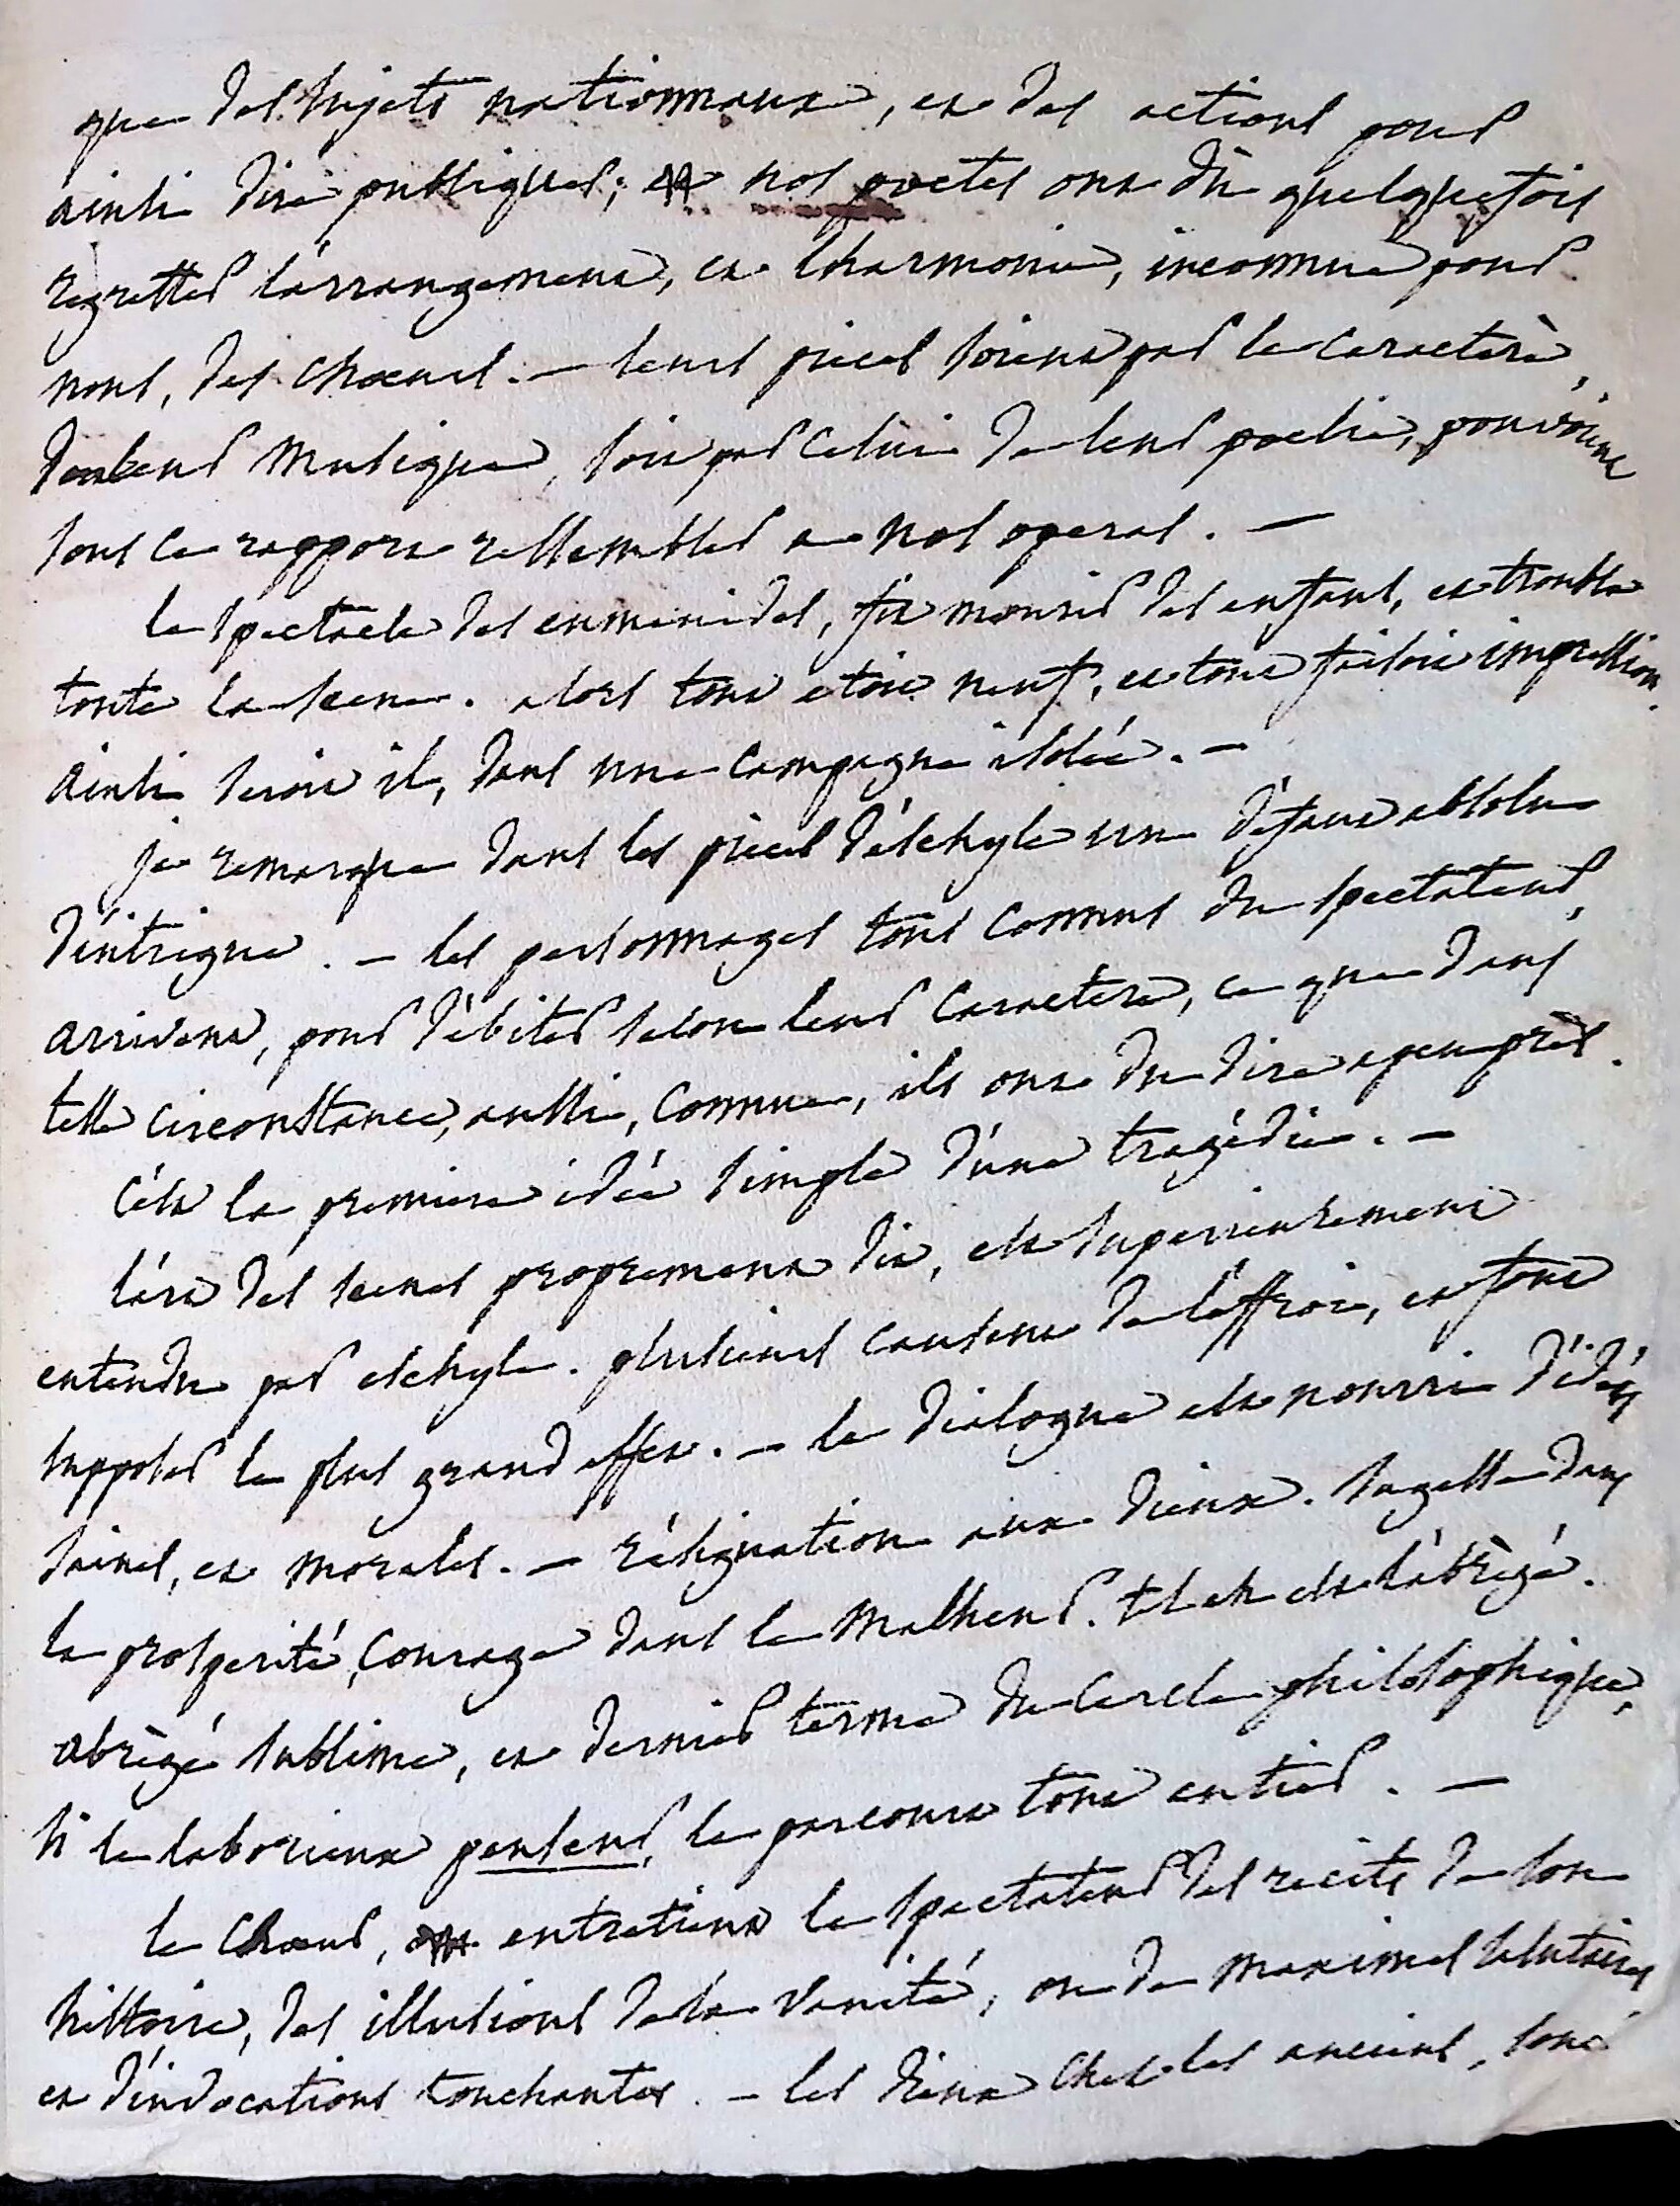 que des sujets nationnaux, et des actions pour
ainsi dire publiques; nos poetes ont dû quelquefois
regretter l'arrangement, et l'harmonie, inconnue pour
nous, des choeurs. — leurs pieces soient par le caractère,
de leur musique, soit par celui de leur poesie, pouvoient
sous ce rapport ressembler a nos operas. —
le spectacle des eumenides, fit mourir des enfans, et troubla
toute la scene. alors tout etoit neuf, et tout faisoit impression.
ainsi seroit il, dans une campagne isolée. —
je remarque dans les pieces d'éschyle un défaut absolu
d'intrigue. — les personnages tous connus du spectateur,
arrivent, pour débiter selon leur caractere, ce que dans
telle circonstance, aussi, connue, ils ont du dire a peu près.
c'ést la premiere idée simple d'une tragédie. —
l'art des scenes proprement dit, est superieurement
entendu par eschyle. plusieurs causent de l'effroi, et font
supposer le plus grand effet. — le dialogue est nourri d'idées
saines, et morales. — résignation aux dieux. sagesse dans
la prosperité, courage dans le malheur. tel en est l'abrègé.
abrègé sublime, et dernier terme du cercle philosophique,
si le laborieux penseur, le parcourt tout entier. —
le choeur, entretient le spectateur des recits de son
histoire, des illusions de la vanité, ou de maximes salutaires
et d'invocations touchantes. — les dieux chez les anciens, sont